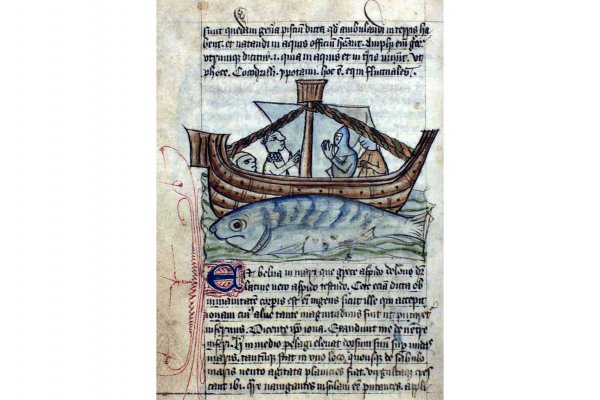 sunt quedam gena pisciū dicta qd ambulandi in terris ha
bent. et natandi in aquis officiū hñt. Amphi eī gre
utrumque dicitur .i. quia in aquis et in tris vivūt. vt
phoce. Cocodrilli. ypotami. hoc ē. equi fluctuales.
Est belua in mari que grece aspido delone dr
latine vero aspido testudo. Cete eciam dicta ob
immanitatem corpis est eī ingens sicut ille qui accepit
ionam cuiꝰ alvꝰ tante magnitudinis fuit ut putaret
infernus. Dicente ipso iona. Exaudivit me de ventre
inferi. Hec in medio pelagi elevat dorsum suū sup undas
maris. tantumque stat in uno loco. quousque de sabulo
maris vento agitata planicies fiat. virgultaque cres
cant ibi. navigantes insulam eē putantes. appli